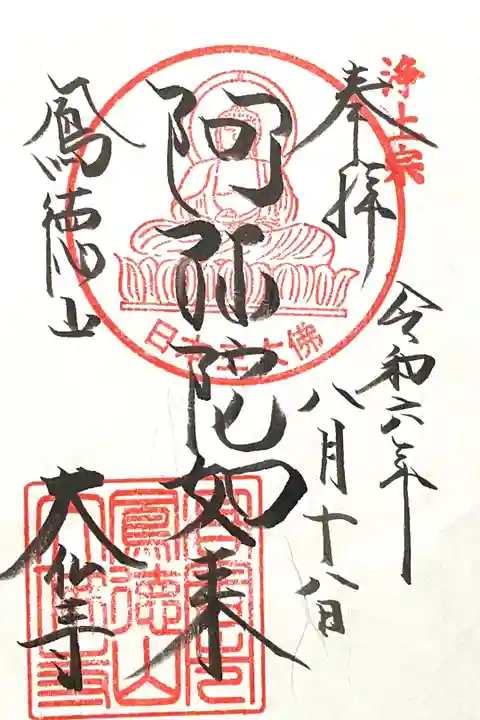 浄土宗
奉拝
令和六年
八月十八日
阿弥陀如来
日本三大佛
鳳徳山
大仏寺
鳳徳山
大佛寺